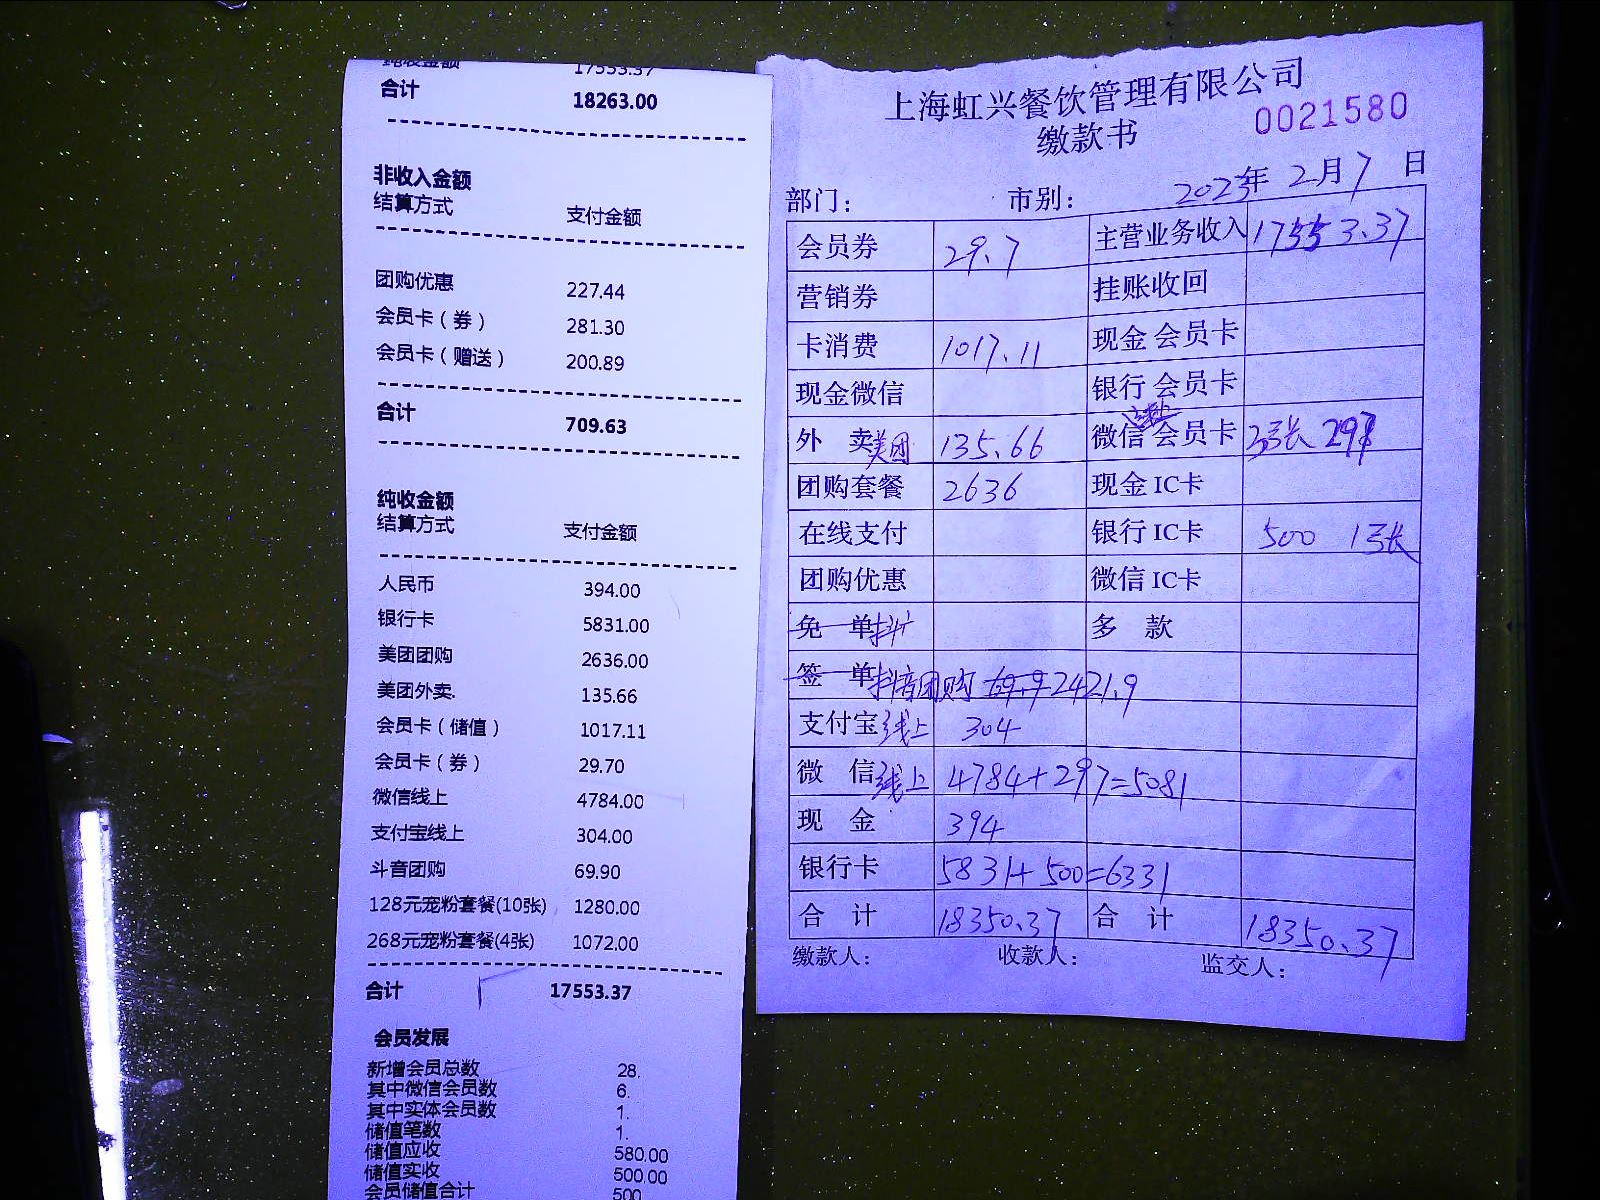 纯收金额 17553.37
合计 18263.00
非收入金额
结算方式 支付金额
团购优惠 227.44
会员卡（券） 281.30
会员卡（赠送） 200.89
合计 709.63
纯收金额
结算方式 支付金额
人民币 394.00
银行卡 5831.00
美团团购 2636.00
美团外卖 135.66
会员卡（储值） 1017.11
会员卡（券） 29.70
微信线上 4784.00
支付宝线上 304.00
斗音团购 69.90
128元宠粉套餐(10张) 1280.00
268元宠粉套餐(4张) 1072.00
合计 17553.37
会员发展
新增会员总数 28.
其中微信会员数 6.
其中实体会员数 1.
储值笔数 1.
储值应收 580.00
储值实收 500.00
会员储值合计 500
上海虹兴餐饮管理有限公司
缴款书 0021580
2023年 2月 7 日
部门： 市别：
会员券 29.7 主营业务收入 17553.37
营销券 挂账收回
卡消费 1017.11 现金 会员卡
现金微信 银行 会员卡
外 卖 美团 135.66 微信 会员卡 3张 297
团购套餐 2636 现金 IC卡
在线支付 银行 IC卡 500 1张
团购优惠 微信 IC卡
免 单 抖 多 款
签 单 抖音团购 69.9 2421.9
支付宝 线上 304
微 信 线上 4784+297=5081
现 金 394
银行卡 5831+500=6331
合 计 18350.37 合 计 18350.37
缴款人： 收款人： 监交人：